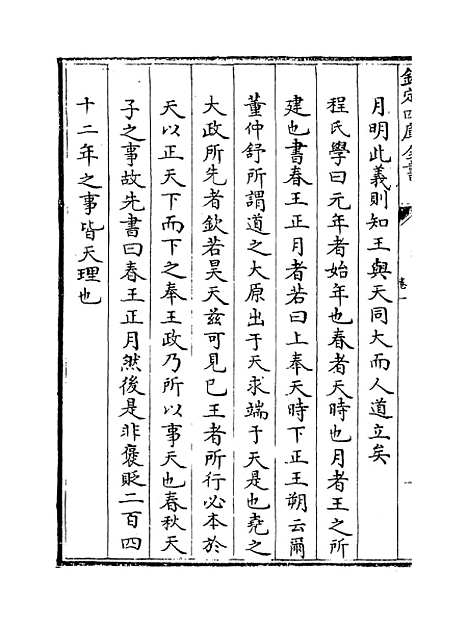 欽定四庫全書
卷一
月明此義則知王與天同大而人道立矣
程氏學曰元年者始年也春者天時也月者王之所
建也書春王正月者若曰上奉天時下正王朔云爾
董仲舒所謂道之大原出于天求端于天是也堯之
大政所先者欽若昊天兹可見已王者所行必本於
天以正天下而下之奉王政乃所以事天也春秋天
子之事故先書曰春王正月然後是非褒貶二百四
十二年之事皆天理也